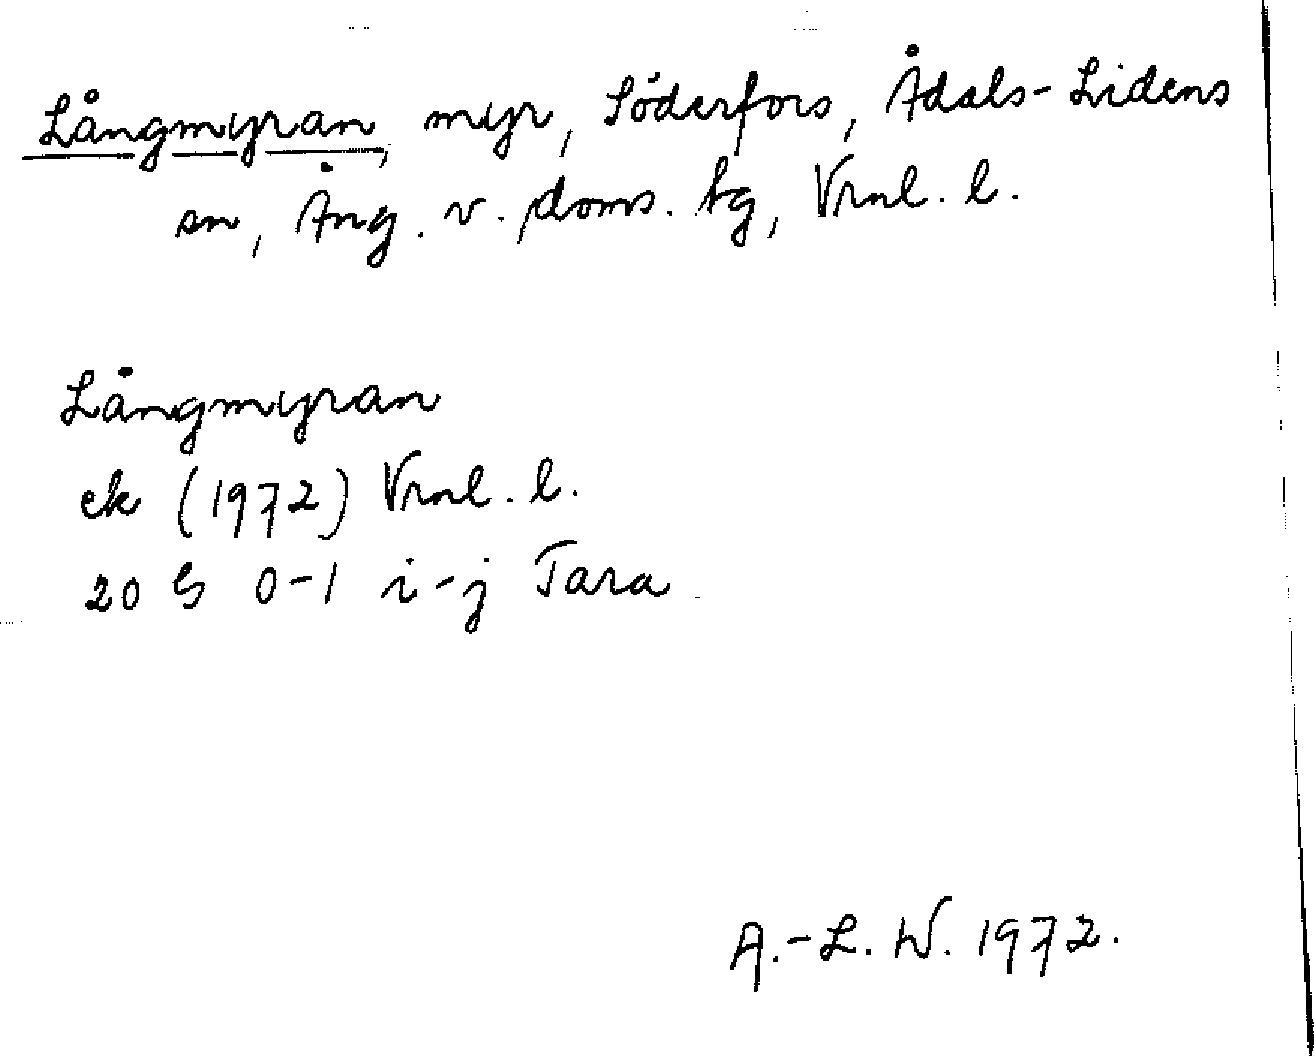 Långmyran, myr, Söderfors, Ådals-Lidens
sn, Ång. v. doms. tg, Vrnl. l.
Långmyran
ek (1972) Vrnl. l.
20 G 0-1 i-j Tara
A.-L. W. 1972.